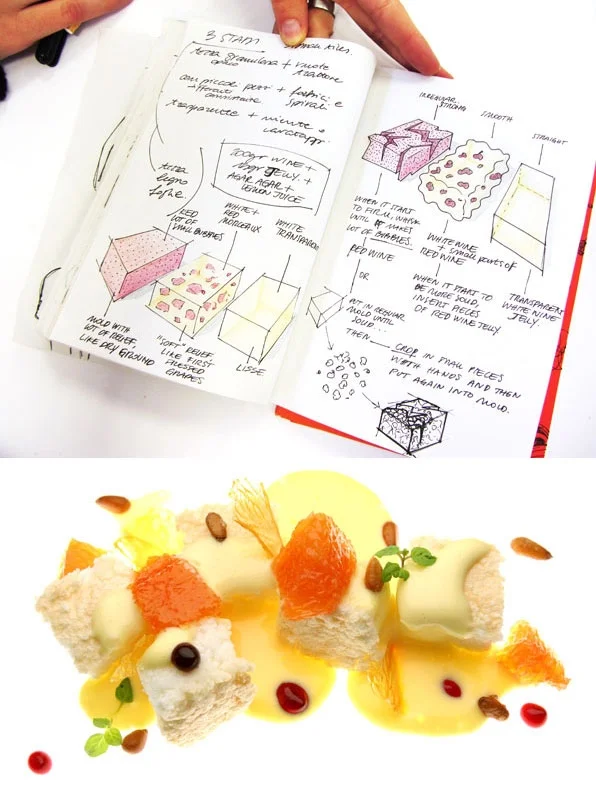 3 STAM
tessa granulosa + ruote
trattore
con piccoli puri + forbici e
spirali
trasparente + niente o
cavatappi
200gr WINE +
JELLY +
AGAR AGAR +
LEMON JUICE
RED
LOT OF
SMALL BUBBLES
WHITE +
RED
MORCEAUX
WHITE
TRANSPARENT
MOLD WITH
LOT OF RELIEF
LIKE DRY GROUND
"SOFT" RELIEF
LIKE FIRST
PRESSED
GRAPES
LISSE
IRREGULAR
STRONG
SMOOTH
STRAIGHT
WHEN IT START
TO FIRM, WHISK
UNTIL IT MAKES
LOT OF BUBBLES.
RED WINE
OR
PUT IN REGULAR
MOLD UNTIL
SOLID.
THEN CROP IN SMALL PIECES
WITH HANDS AND THEN
PUT AGAIN INTO MOLD.
WHITE WINE
+ small parts of
RED WINE
WHEN IT START TO
BE MORE SOLID,
INSERT PIECES
OF RED WINE JELLY.
TRANSPARENT
WHITE WINE
JELLY